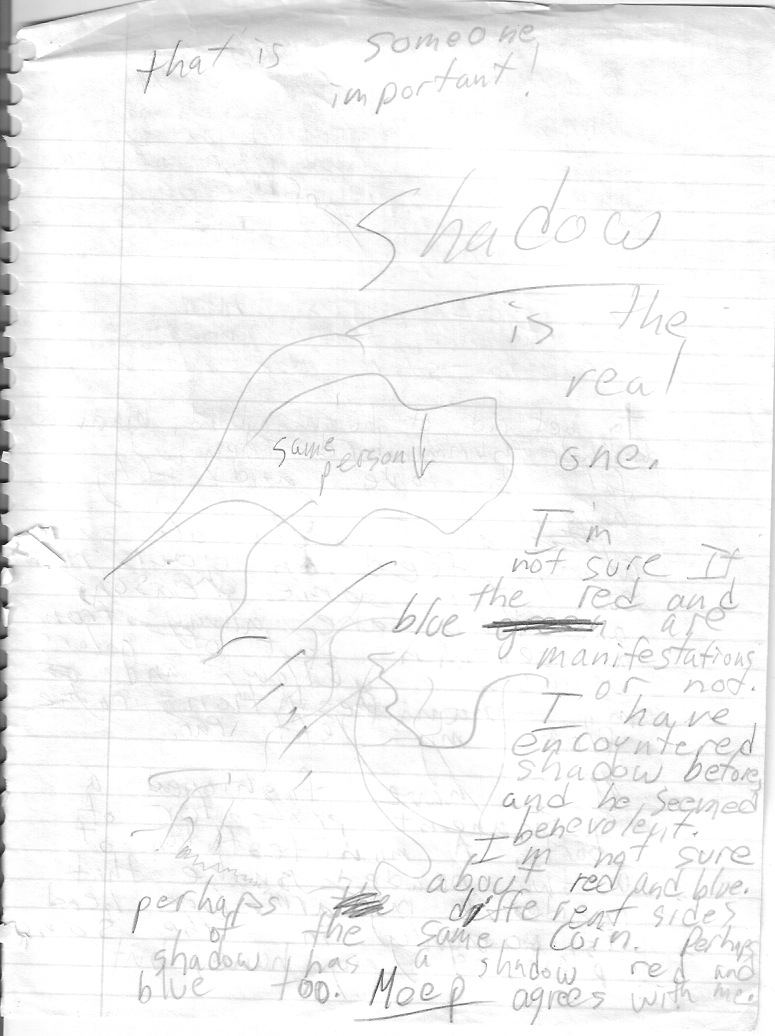 that is someone
important!
Shadow
is the
real
one.
same
person
I'm
not sure If
the red and
blue are
manifestations
or not.
I have
encountered
shadow before,
and he seemed
benevolent.
I'm not sure
about red and blue.
perhaps different sides
of the same coin. Perhaps
shadow has a shadow red and
blue too. Moep agrees with me.